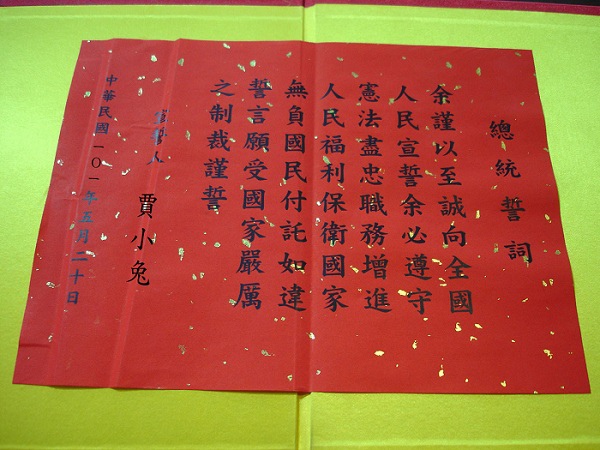 總統誓詞
余謹以至誠向全國
人民宣誓余必遵守
憲法盡忠職務增進
人民福利保衛國家
無負國民付託如違
誓言願受國家嚴厲
之制裁謹誓
宣誓人 賈小兔
中華民國一〇一年五月二十日